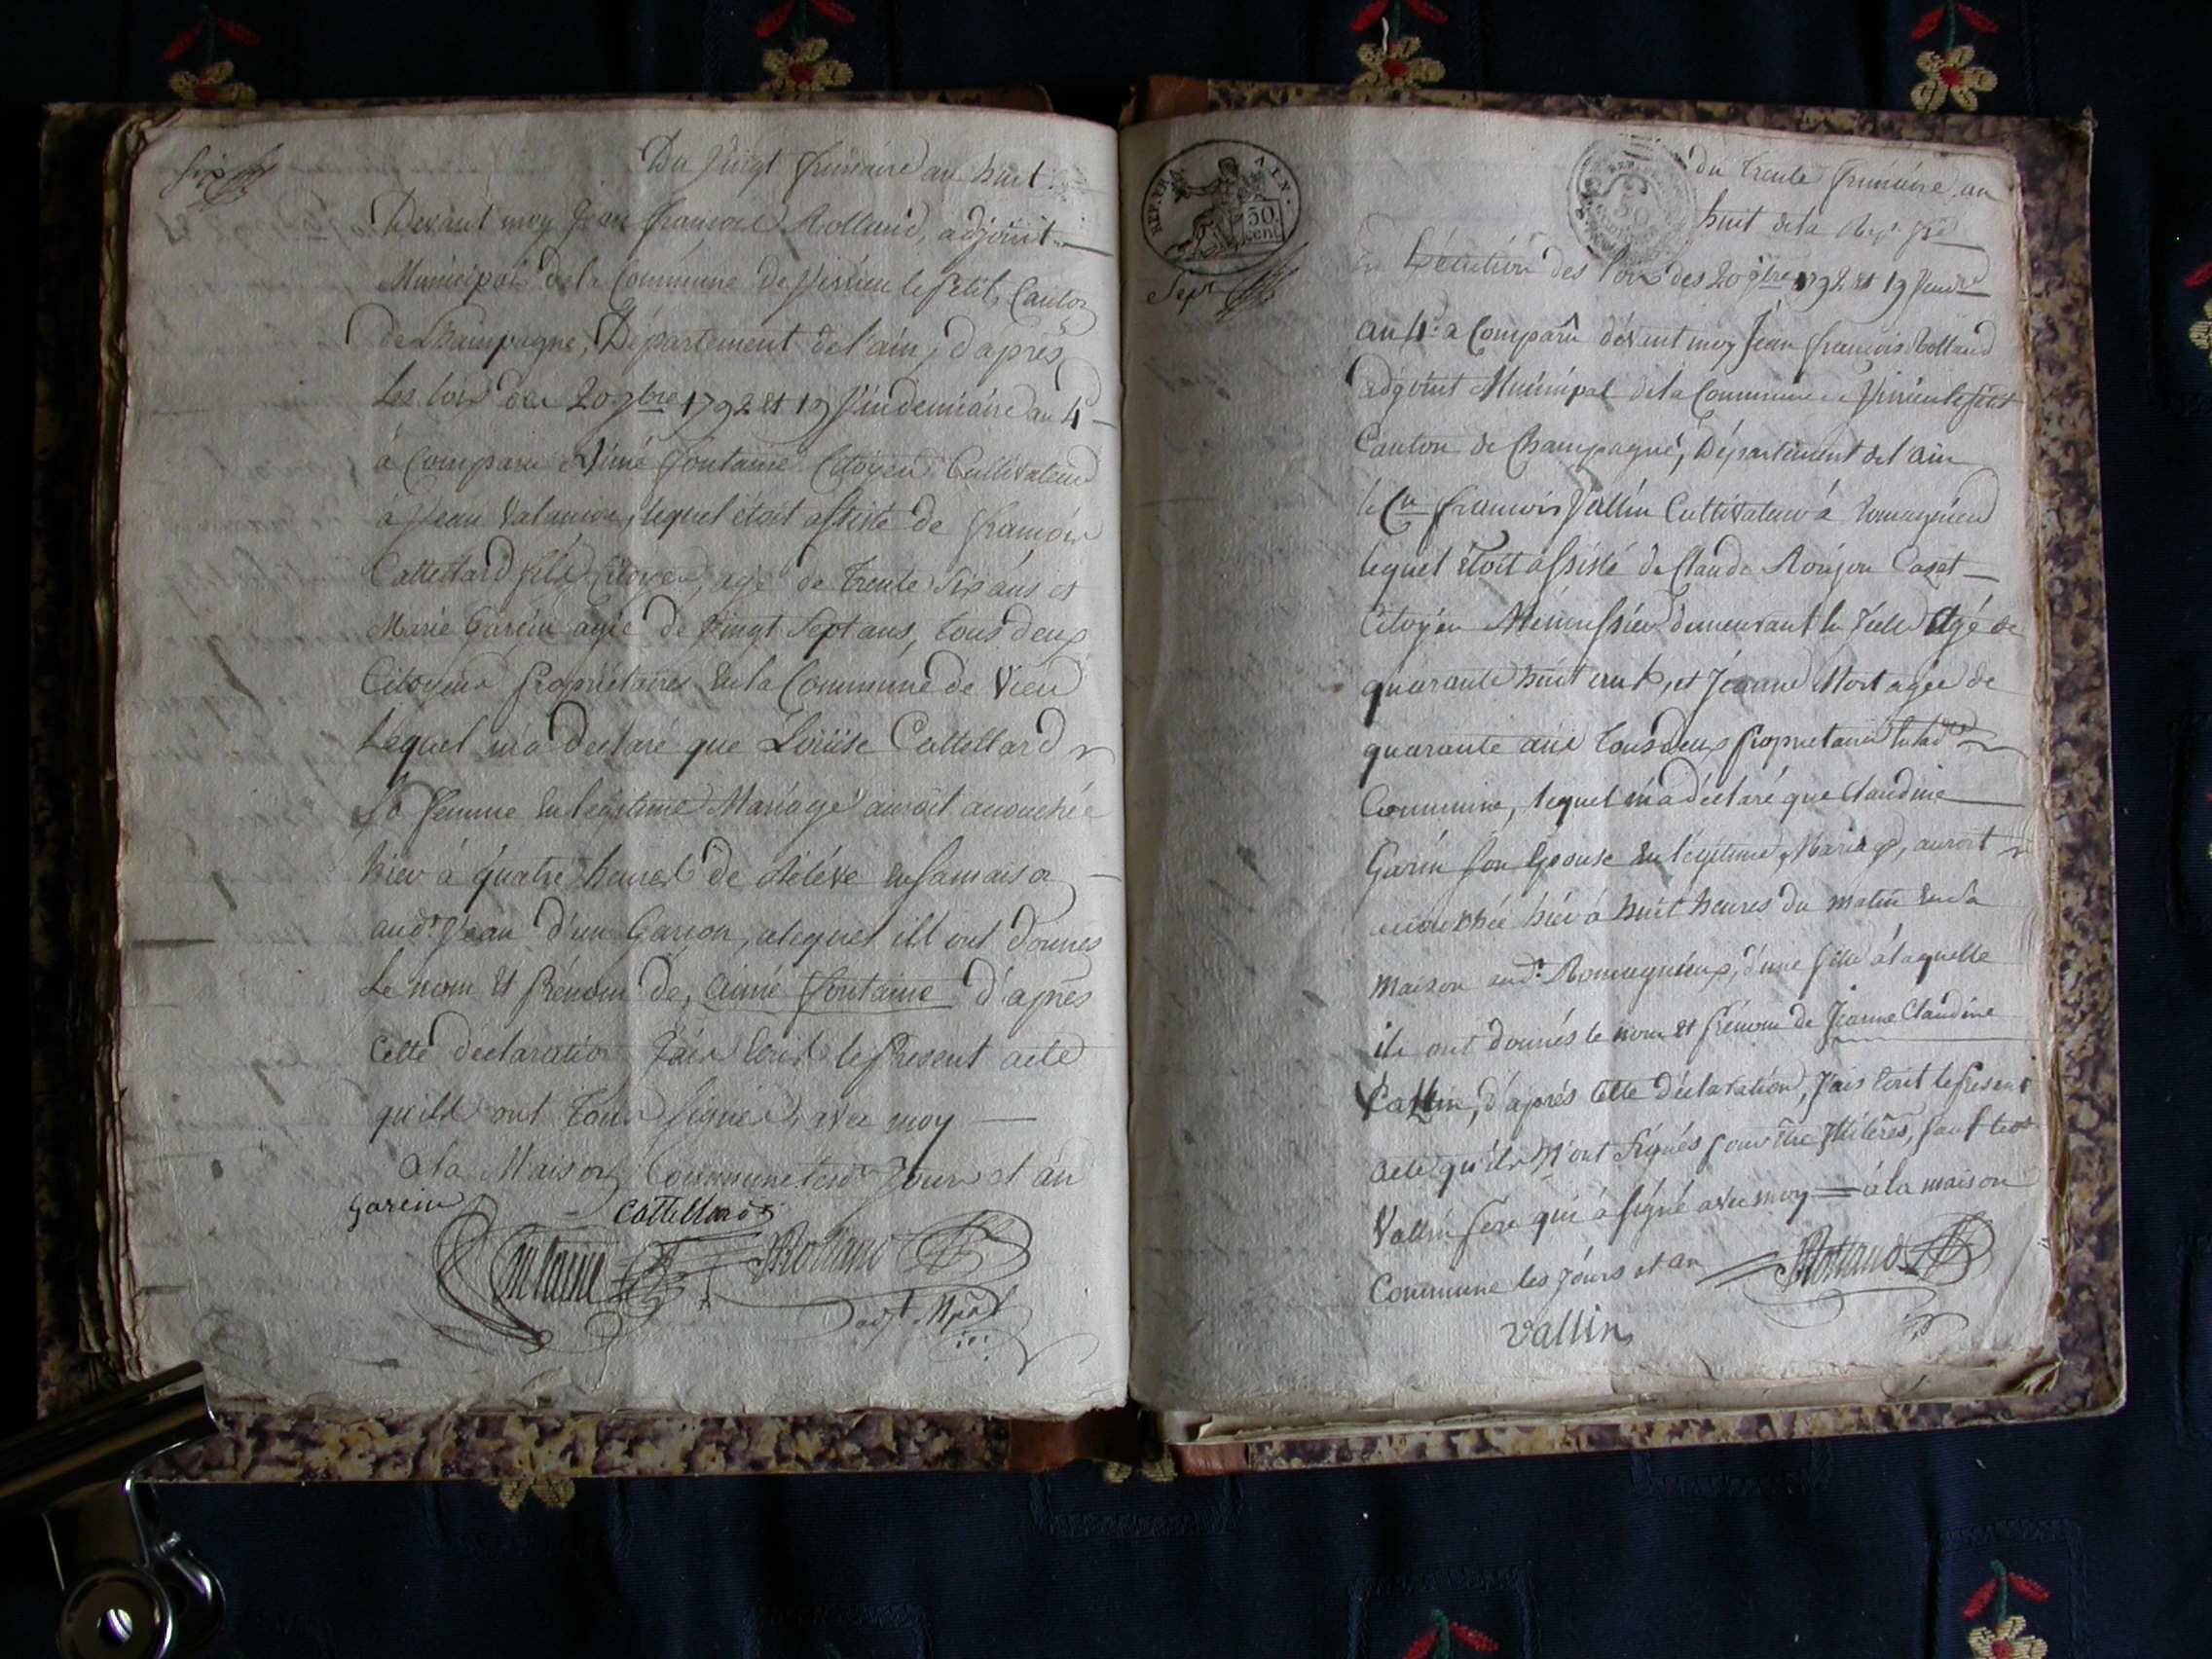 Six
Du vingt frimaire an huit
Devant moy Jean françois Rolland, adjoint
Municipal de la Commune de Virieu le petit, Canton
de Champagne, Département de l'ain, d'après
les loix des 20 7bre 1792 et 19 Vindemiaire an 4
à Comparu Aimé fontaine Citoyen Cultivateur
à Jean Valamion, lequel étoit assisté de françois
Cattellard fils Citoyen, agé de trente six ans et
Marie Garcin agée de vingt sept ans, tous deux
Citoyens propriétaires en la Commune de Vieu
Lequel m'a déclaré que Loüise Cattellard
Sa femme en légitime Mariage auroit accouchée
hier à quatre heures de relevé en sa maison
aud. Jean d'un Garçon, alequel ill ont donnés
Le nom et prénom de, aimé fontaine d'apres
cette déclaration J'ais Ecrit le présent acte
quills ont tous signés, avec moy
a la Maison Commune lesd. Jour et an
Garcin Cattellard
fontaine JRolland
adjt Mpal
REP. FRA. AIN.
50. cent.
Sept
du trente frimaire an
huit de la Rep. fse
En Exécution des loix des 20 7bre 1792 et 19 Vendre
an 4e a Comparu dévent moy Jean francois Rolland
adjoint Municipal de la Commune de Virieu le petit
Canton de Champagne, Département de l'ain
le Cn francois Vallin Cultivateur à Romagnieu
lequel étoit assisté de Claude Roujon Caset
Citoyen Ménuissier demeurant le Jeule Agé de
quarante huit ans, et Jeanne Mort agée de
quarante ans tous deux propriétaires en lad
Commune, lequel m'a déclaré que Claudine
Garin son Epouse en légitime Mariage, auroit
accouchée hier à huit heures du matin en sa
maison aud. Romagnieux, d'une fille à laquelle
ils ont donnés le nom et prénom de Jeanne Claudine
Vallin, d'aprés Cette déclaration, J'ais Ecrit le présent
acte qu'ils n'ont signés pour être Illiterés, sauf led
Vallin pere qui à signé avec moy = à la maison
Commune les Jours et an JRolland
vallin